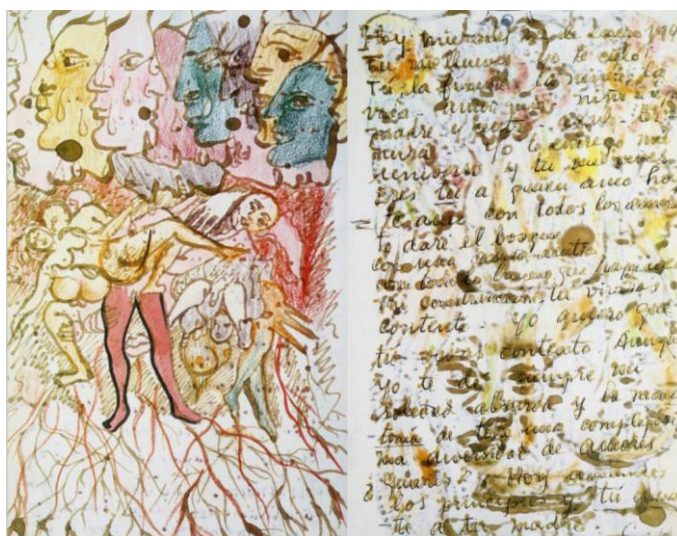 Hoy miercoles 22 de enero 194
Tu me llueves - yo te cielo
Tu la finura, la niñez, la
vida - amor mio - niño - viejo
madre y centro - azul - ter-
nura Yo te entrego mi
universo y tu me vives
Eres tú a quien amo hoy
te amo con todos los amores
te daré el bosque
con una casita dentro
con todo lo bueno que haya en
mi construccion, tu vivirás
contento - yo quiero que
tu vivas contento. Aunque
yo te dé siempre mi
soledad absurda y la mono
tonia de toda una complejisi
ma diversidad de amores
¿Quieres? Hoy
los principios y tú
te a tu madre